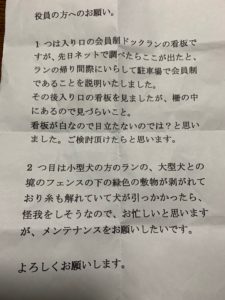 役員の方へのお願い。
１つは入り口の会員制ドックランの看板で
すが、先日ネットで調べたらここが出たと、
ランの帰り間際にいらして駐車場で会員制
であることを説明いたしました。
その後入り口の看板を見ましたが、柵の中
にあるので見づらいこと。
看板が白なので目立たないのでは？と思い
ました。ご検討頂けたらと思います。
２つ目は小型犬の方のランの、大型犬との
境のフェンスの下の緑色の敷物が剥がれて
おり糸も解れていて犬が引っかかったら、
怪我をしそうなので、お忙しいと思います
が、メンテナンスをお願いしたいです。
よろしくお願いします。